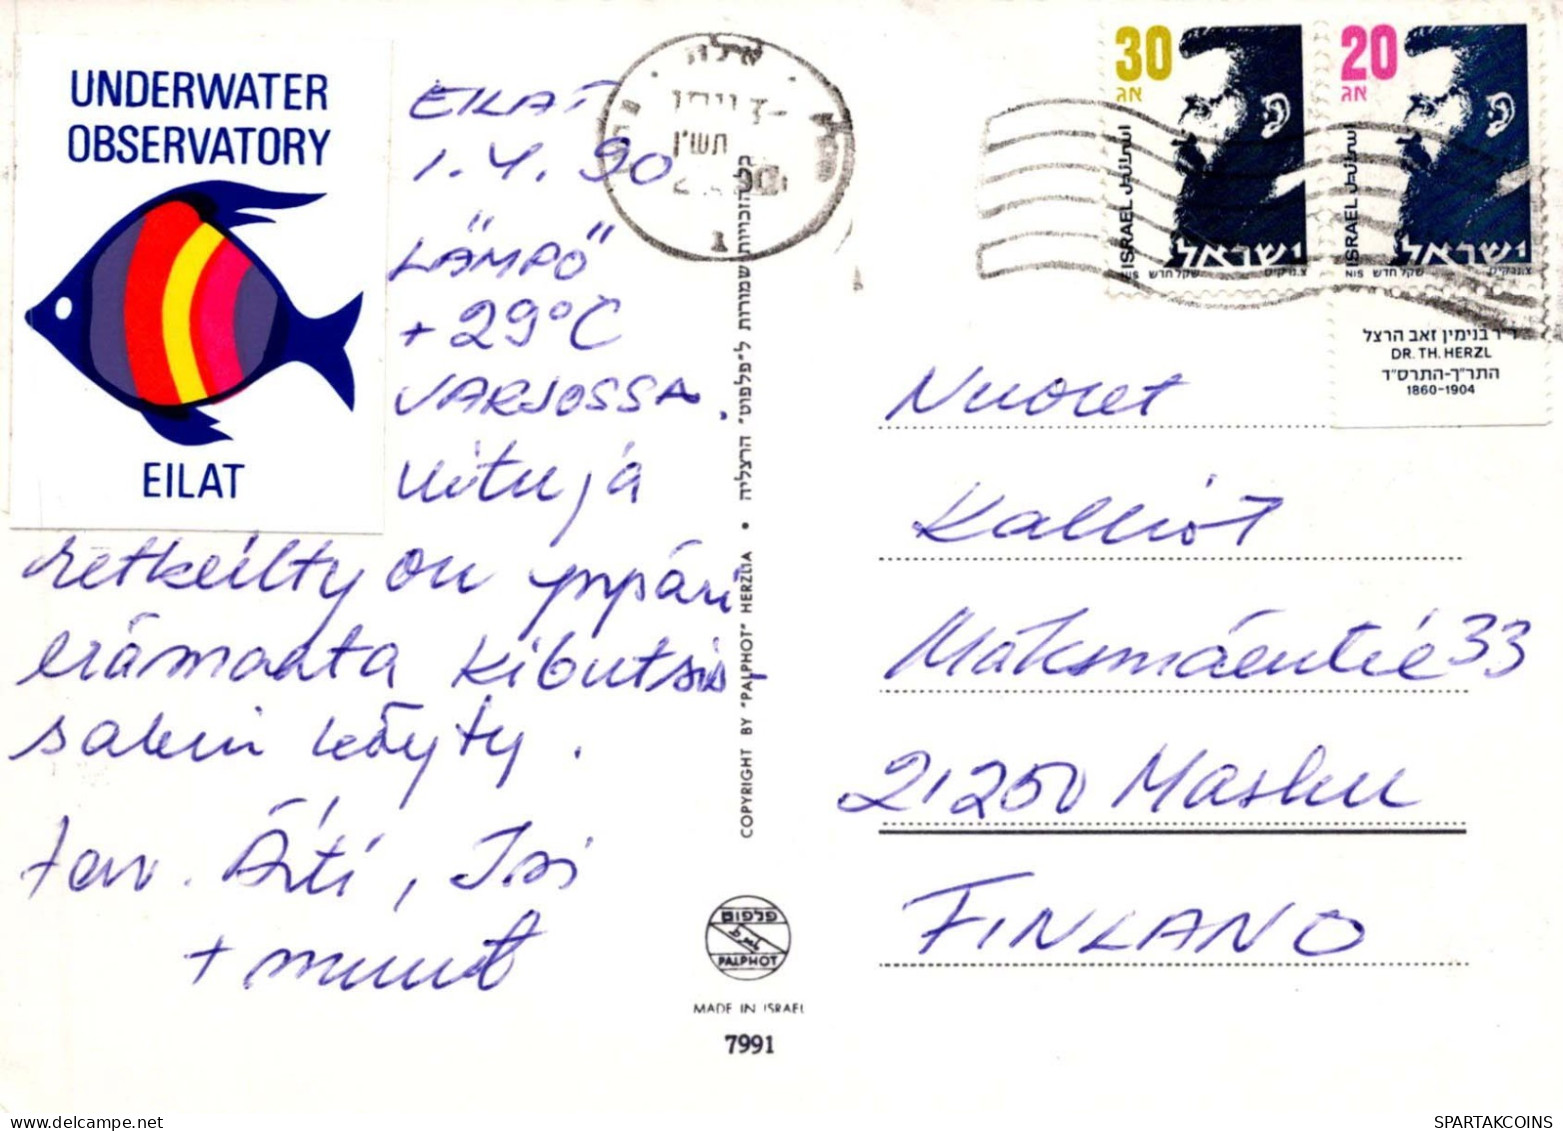 UNDERWATER
OBSERVATORY
EILAT
EILAT
1.4.90
LÄMPÖ
+29°C
VARJOSSA.
Uitu ja
retkeilty on ympäri
erämaata Kibutsis-
sakin käyty.
terv. Äiti, Isi
+ muut
אילת
תש"ן
כל הזכויות שמורות ל"פלפוט" הרצליה • COPYRIGHT BY "PALPHOT" HERZLIA
פלפוט
PALPHOT
MADE IN ISRAEL
7991
30
אג
ISRAEL اسرائيل
ישראל
NIS שקל חדש
20
אג
ISRAEL اسرائيل
ישראל
NIS שקל חדש
ד"ר בנימין זאב הרצל
DR. TH. HERZL
התר"ך-התרס"ד
1860-1904
Nuoret
Kalliot
Maksmäentie 33
21250 Masku
FINLAND
SPARTAKCOINS